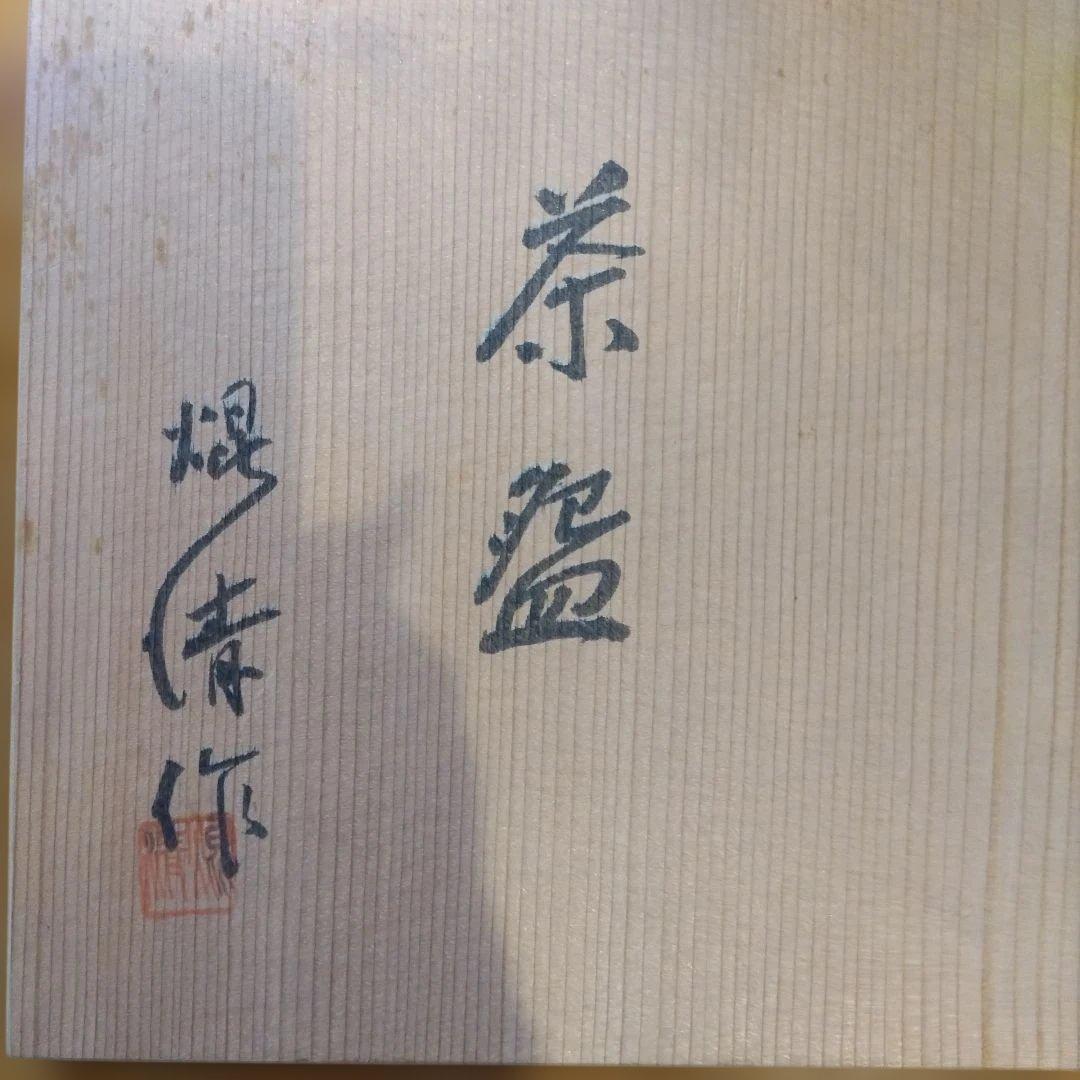 茶盌
焜清作